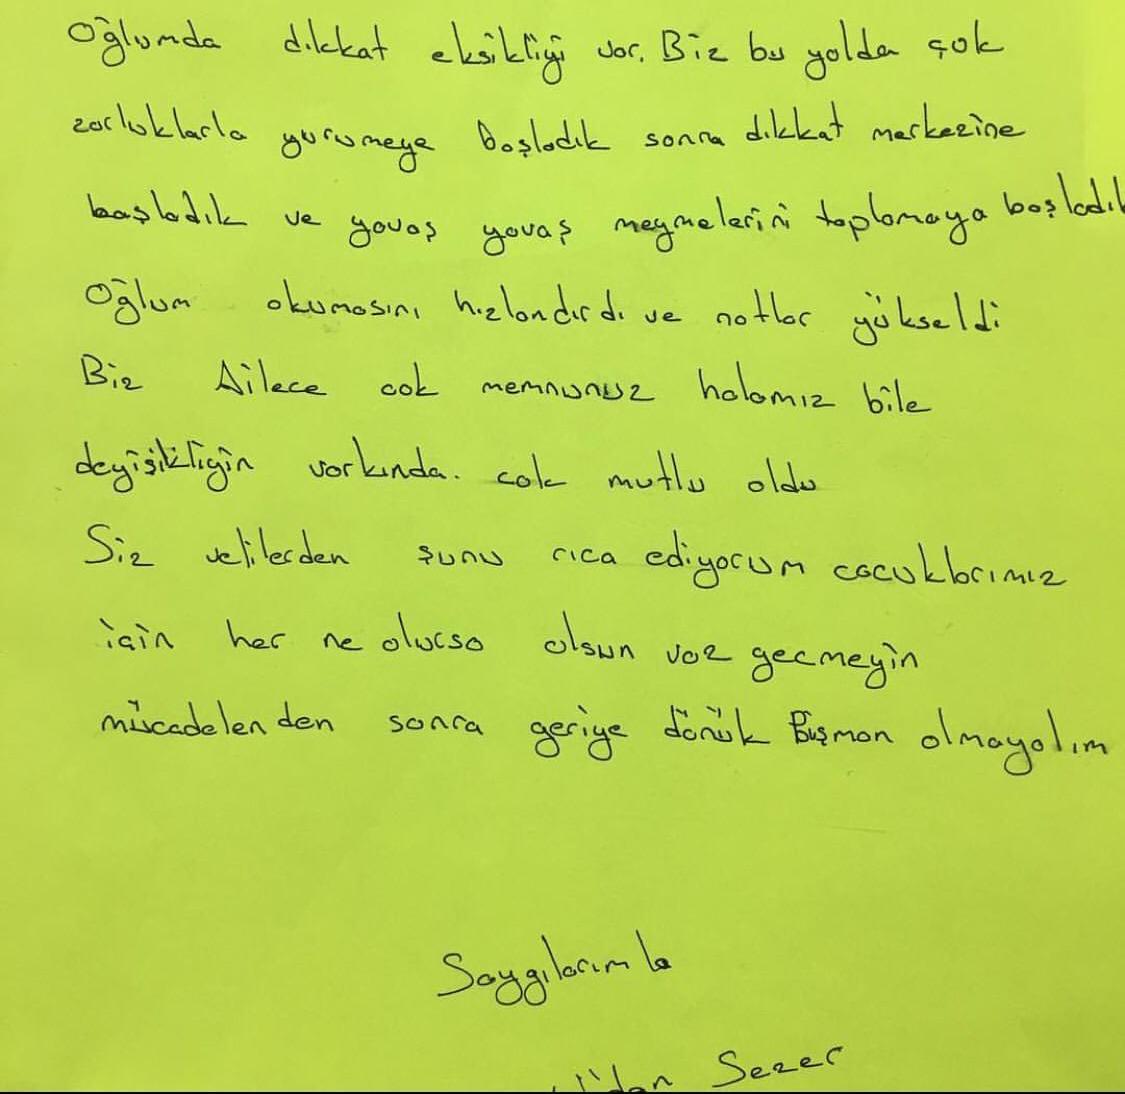 Oğlumda dikkat eksikliği var. Biz bu yolda çok
zorluklarla yurumeye başladık sonra dıkkat merkezine
başladık ve yavaş yavaş meymelerini toplamaya başladık
Oğlum okumasını hızlandırdı ve notlar yükseldi
Biz Ailece cok memnunuz halamız bile
deyişikliğin varkında. cok mutlu oldu
Siz velilerden şunu rica ediyorum cocuklarımız
için her ne olursa olsun vaz gecmeyin
mücadelenden sonra geriye dönük Pişman olmayalım
Saygılarımla
Sezer